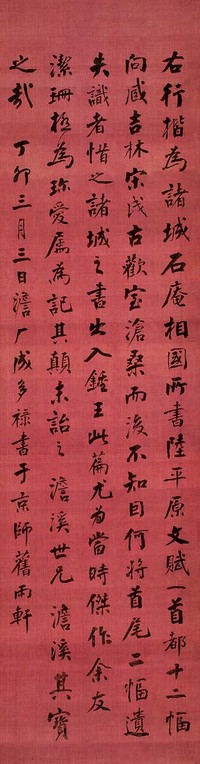 右行楷為諸城石庵相國所書陸平原文賦一首都十二幅
向咸吉林宋氏古歡室滄桑而後不知因何將首尾二幅遺
失識者惜之諸城之書出入鍾王此篇尤為當時傑作余友
潔珊極為珍愛屬為記其顛末詒之澹溪世兄澹溪其寶
之哉 丁卯三月三日澹厂成多祿書于京師舊雨軒